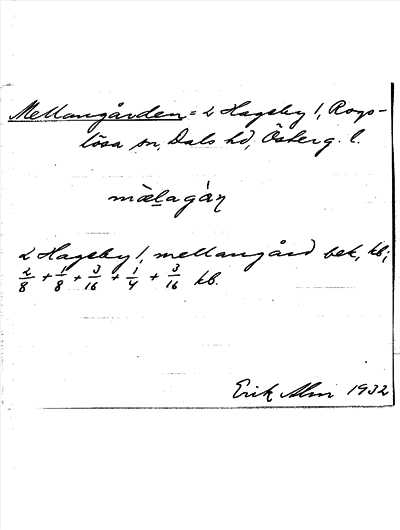 Mellangården = 2 Hageby 1, Rogs-
lösa sn, Dals hd, Österg. l.
mælagàɳ
2 Hageby 1, mellangård bek, kb;
2/8 + 1/8 + 3/16 + 1/4 + 3/16 kb.
Erik Alm 1932